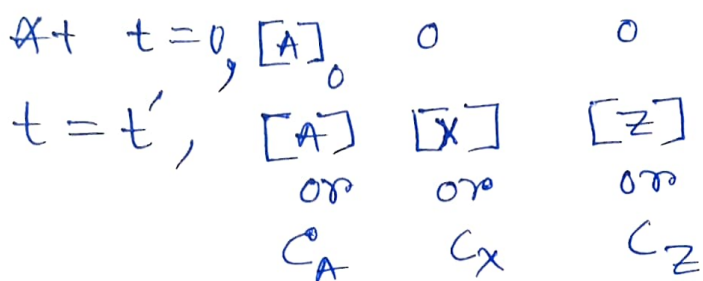 At t = 0, [A]₀ 0 0
t = t′, [A] [X] [Z]
or or or
C_A C_X C_Z